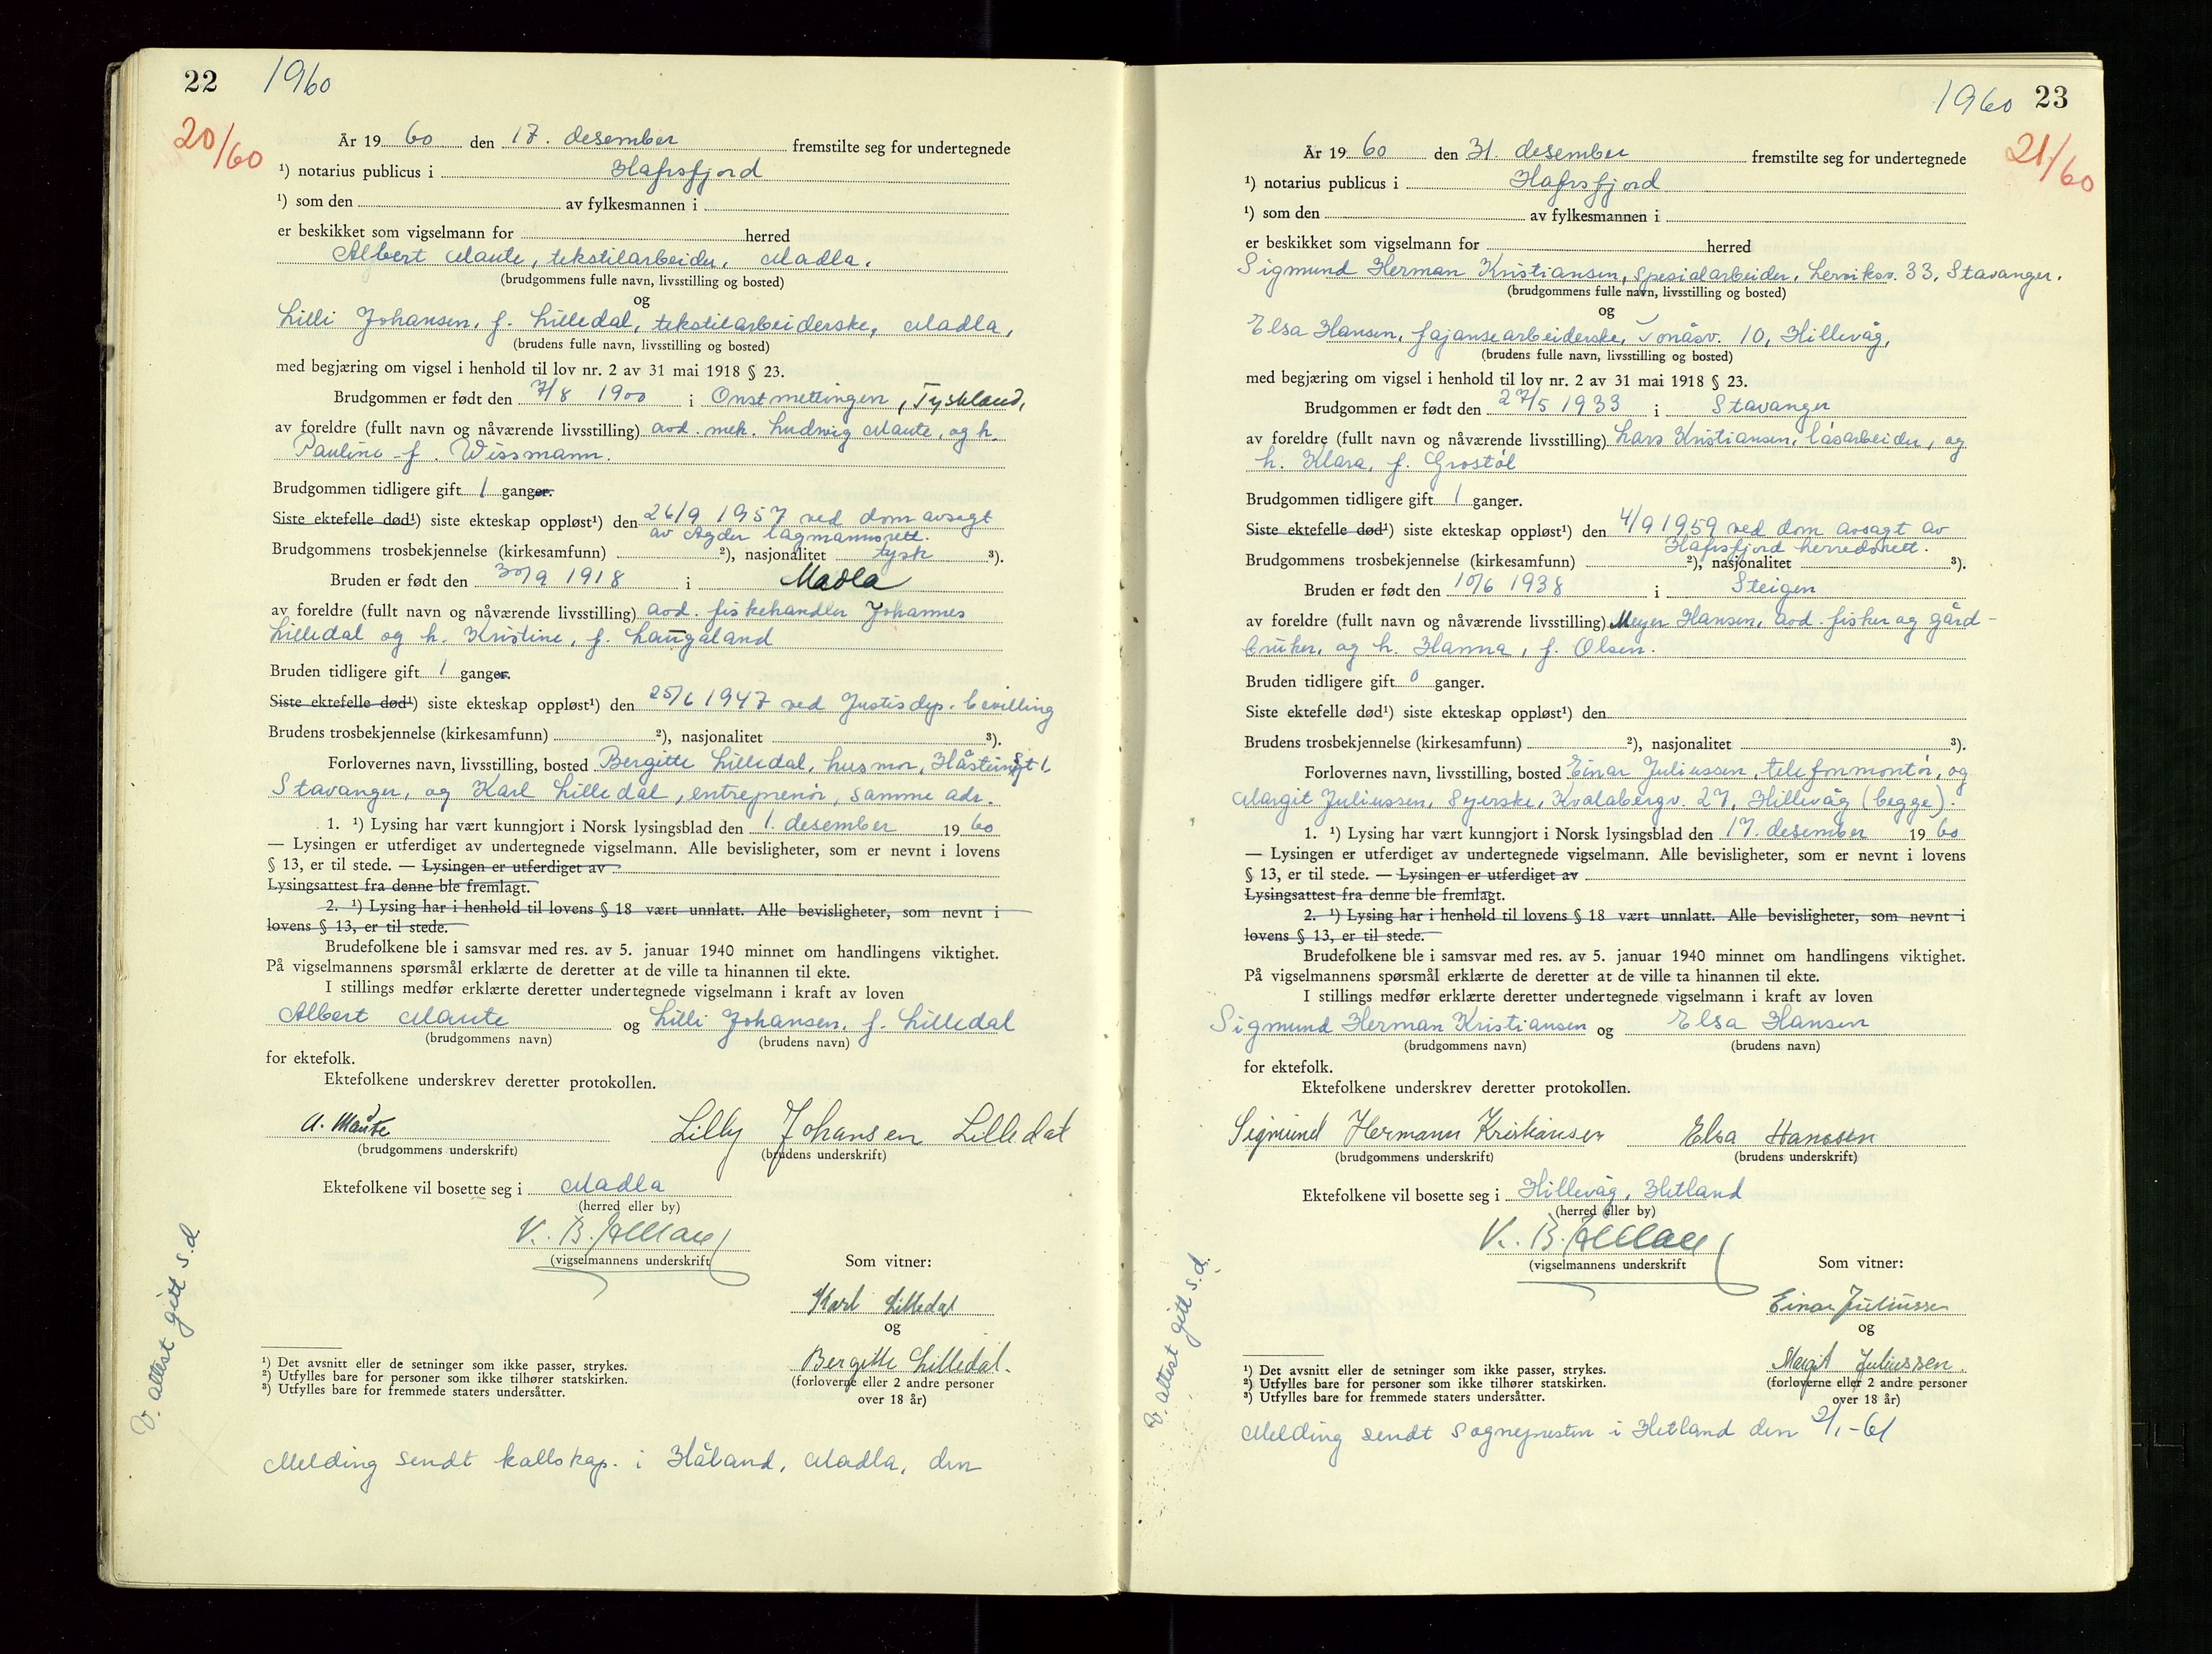 22 1960
20/60
År 19 60 den 17. desember fremstilte seg for undertegnede
¹) notarius publicus i Hafrsfjord
¹) som den av fylkesmannen i
er beskikket som vigselmann for herred
Albert Maute, tekstilarbeider, Madla.
(brudgommens fulle navn, livsstilling og bosted)
og
Lilli Johansen, f. Lilledal, tekstilarbeiderske, Madla,
(brudens fulle navn, livsstilling og bosted)
med begjæring om vigsel i henhold til lov nr. 2 av 31 mai 1918 § 23.
Brudgommen er født den 7/8 1900 i Onstmettingen, Tyskland,
av foreldre (fullt navn og nåværende livsstilling) avd. mek. Ludwig Maute, og h.
Pauline f. Wissmann.
Brudgommen tidligere gift 1 ganger.
Siste ektefelle død¹) siste ekteskap oppløst¹) den 26/9 1957 ved dom avsagt
av Agder lagmannsrett.
Brudgommens trosbekjennelse (kirkesamfunn) ²), nasjonalitet tysk ³).
Bruden er født den 30/9 1918 i Madla
av foreldre (fullt navn og nåværende livsstilling) avd. fiskehandler Johannes
Lilledal og h. Kristine, f. Laugaland
Bruden tidligere gift 1 ganger.
Siste ektefelle død¹) siste ekteskap oppløst¹) den 25/6 1947 ved Justisdep. bevilling
Brudens trosbekjennelse (kirkesamfunn) ²), nasjonalitet ³).
Forlovernes navn, livsstilling, bosted Bergitte Lilledal, husmor,
Stavanger, og Karl Lilledal, entreprenør, samme adr.
1. ¹) Lysing har vært kunngjort i Norsk lysingsblad den 1. desember 19 60
— Lysingen er utferdiget av undertegnede vigselmann. Alle bevisligheter, som er nevnt i lovens
§ 13, er til stede. — Lysingen er utferdiget av
Lysingsattest fra denne ble fremlagt.
2. ¹) Lysing har i henhold til lovens § 18 vært unnlatt. Alle bevisligheter, som nevnt i
lovens § 13, er til stede.
Brudefolkene ble i samsvar med res. av 5. januar 1940 minnet om handlingens viktighet.
På vigselmannens spørsmål erklærte de deretter at de ville ta hinannen til ekte.
I stillings medfør erklærte deretter undertegnede vigselmann i kraft av loven
Albert Maute og Lilli Johansen, f. Lilledal
(brudgommens navn) (brudens navn)
for ektefolk.
Ektefolkene underskrev deretter protokollen.
A. Maute Lilly Johansen Lilledal
(brudgommens underskrift) (brudens underskrift)
Ektefolkene vil bosette seg i Madla
(herred eller by)
V. B.
(vigselmannens underskrift
Som vitner:
Karl Lilledal
og
Bergitte Lilledal.
(forloverne eller 2 andre personer
over 18 år)
¹) Det avsnitt eller de setninger som ikke passer, strykes.
²) Utfylles bare for personer som ikke tilhører statskirken.
³) Utfylles bare for fremmede staters undersåtter.
V. attest gitt s.d
Melding sendt kallskap. i Håland, Madla, den
1960 23
21/60
År 19 60 den 31. desember fremstilte seg for undertegnede
¹) notarius publicus i Hafrsfjord
¹) som den av fylkesmannen i
er beskikket som vigselmann for herred
Sigmund Herman Kristiansen, spesialarbeider, Lerviksv. 33, Stavanger.
(brudgommens fulle navn, livsstilling og bosted)
og
Elsa Hansen, fajansearbeiderske, 10, Hillevåg,
(brudens fulle navn, livsstilling og bosted)
med begjæring om vigsel i henhold til lov nr. 2 av 31 mai 1918 § 23.
Brudgommen er født den 27/5 1933 i Stavanger
av foreldre (fullt navn og nåværende livsstilling) Lars Kristiansen, låsarbeider, og
h. Klara, f. Grostøl
Brudgommen tidligere gift 1 ganger.
Siste ektefelle død¹) siste ekteskap oppløst¹) den 4/9 1959 ved dom avsagt av
Hafrsfjord herredsrett.
Brudgommens trosbekjennelse (kirkesamfunn) ²), nasjonalitet ³).
Bruden er født den 10/6 1938 i Steigen
av foreldre (fullt navn og nåværende livsstilling) Meyer Hansen, avd. fisker og gård-
bruker, og h. Hanna, f. Olsen.
Bruden tidligere gift 0 ganger.
Siste ektefelle død¹) siste ekteskap oppløst¹) den
Brudens trosbekjennelse (kirkesamfunn) ²), nasjonalitet ³).
Forlovernes navn, livsstilling, bosted Einar Juliussen, telefonmontør, og
Margit Juliussen, syerske, Kvalabergv. 27, Hillevåg (begge).
1. ¹) Lysing har vært kunngjort i Norsk lysingsblad den 17. desember 19 60
— Lysingen er utferdiget av undertegnede vigselmann. Alle bevisligheter, som er nevnt i lovens
§ 13, er til stede. — Lysingen er utferdiget av
Lysingsattest fra denne ble fremlagt.
2. ¹) Lysing har i henhold til lovens § 18 vært unnlatt. Alle bevisligheter, som nevnt i
lovens § 13, er til stede.
Brudefolkene ble i samsvar med res. av 5. januar 1940 minnet om handlingens viktighet.
På vigselmannens spørsmål erklærte de deretter at de ville ta hinannen til ekte.
I stillings medfør erklærte deretter undertegnede vigselmann i kraft av loven
Sigmund Herman Kristiansen og Elsa Hansen
(brudgommens navn) (brudens navn)
for ektefolk.
Ektefolkene underskrev deretter protokollen.
Sigmund Hermann Kristiansen Elsa Hanssen
(brudgommens underskrift) (brudens underskrift)
Ektefolkene vil bosette seg i Hillevåg, Hetland
(herred eller by)
V. B.
(vigselmannens underskrift
Som vitner:
Einar Juliussen
og
Margit Juliussen.
(forloverne eller 2 andre personer
over 18 år)
¹) Det avsnitt eller de setninger som ikke passer, strykes.
²) Utfylles bare for personer som ikke tilhører statskirken.
³) Utfylles bare for fremmede staters undersåtter.
V. attest gitt s.d.
Melding sendt sognepresten i Hetland den 2/1-61